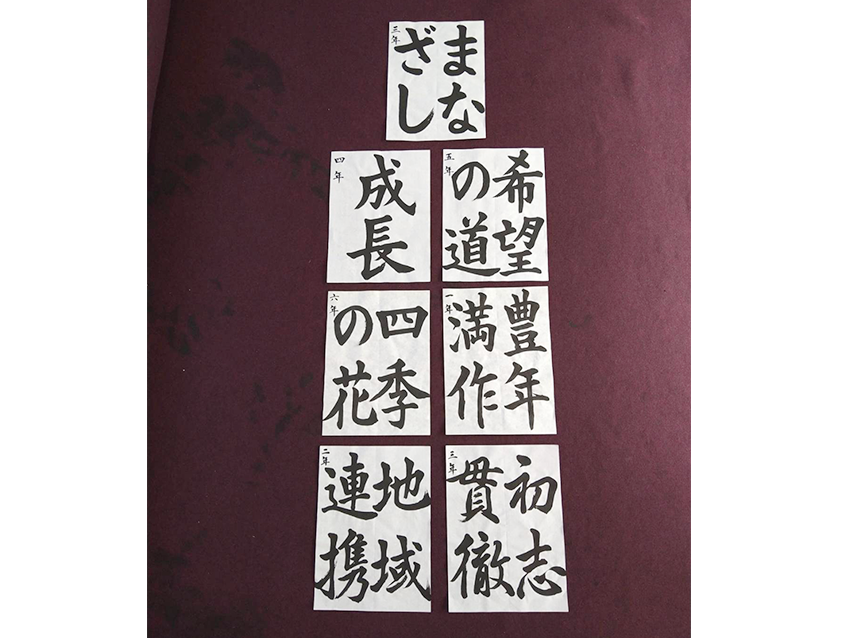 三年
まな
ざし
五年
希望
の道
四年
成長
一年
豊年
満作
六年
四季
の花
三年
初志
貫徹
二年
地域
連携